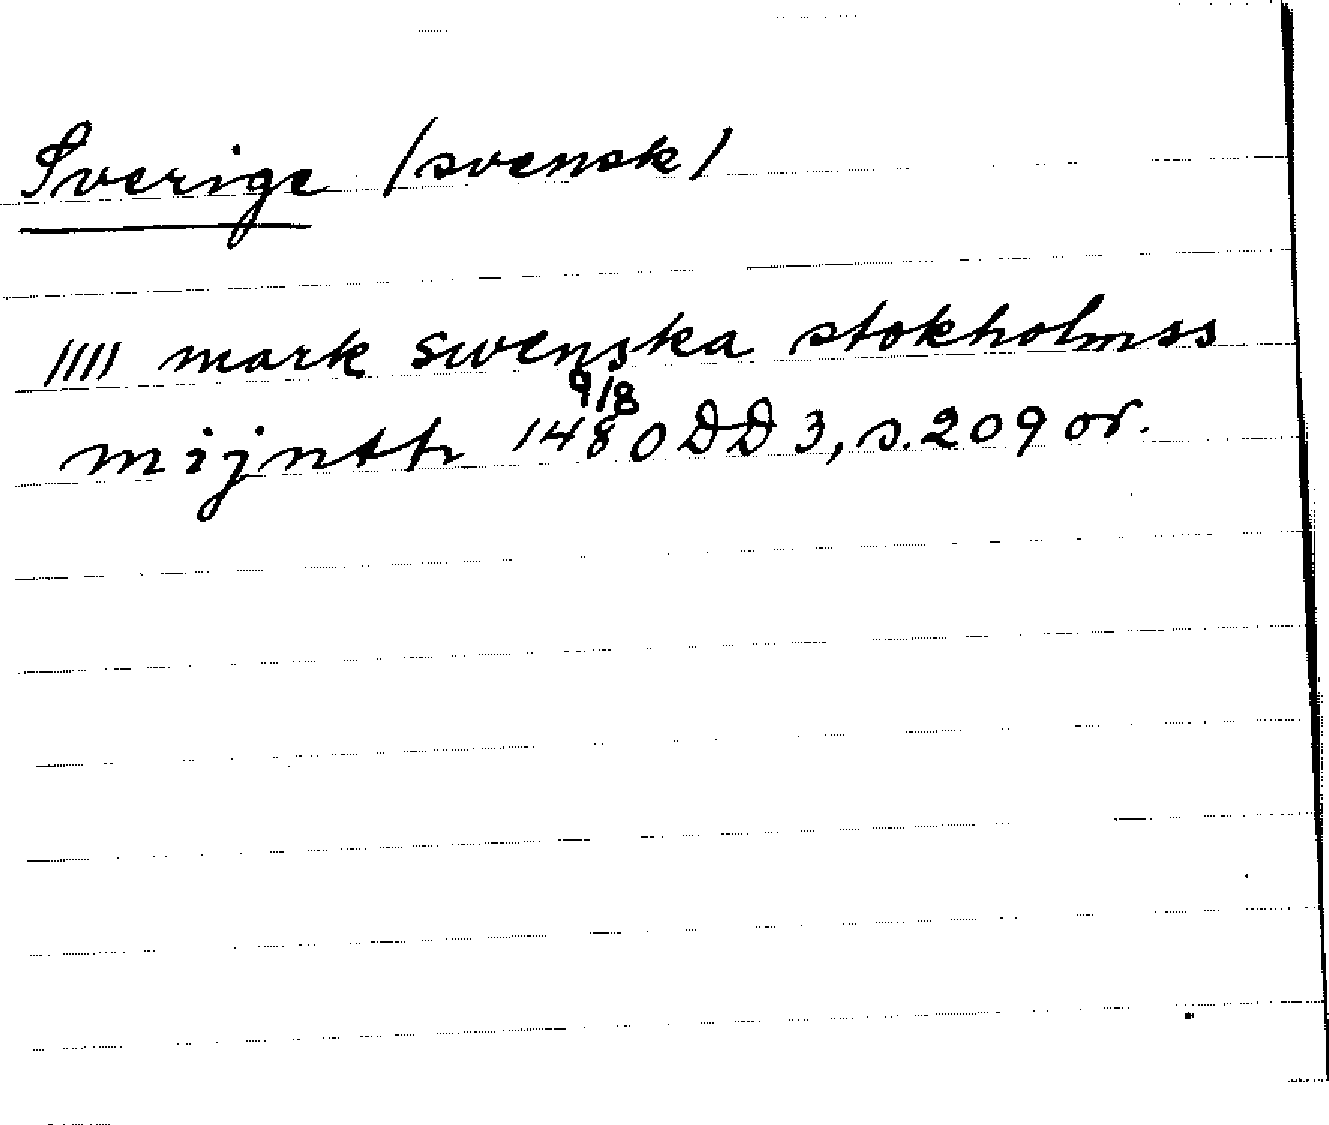 Sverige (svensk)
IIII mark swenska stokholmss
mijnth 9/8 1480 DD 3, s. 209 or.